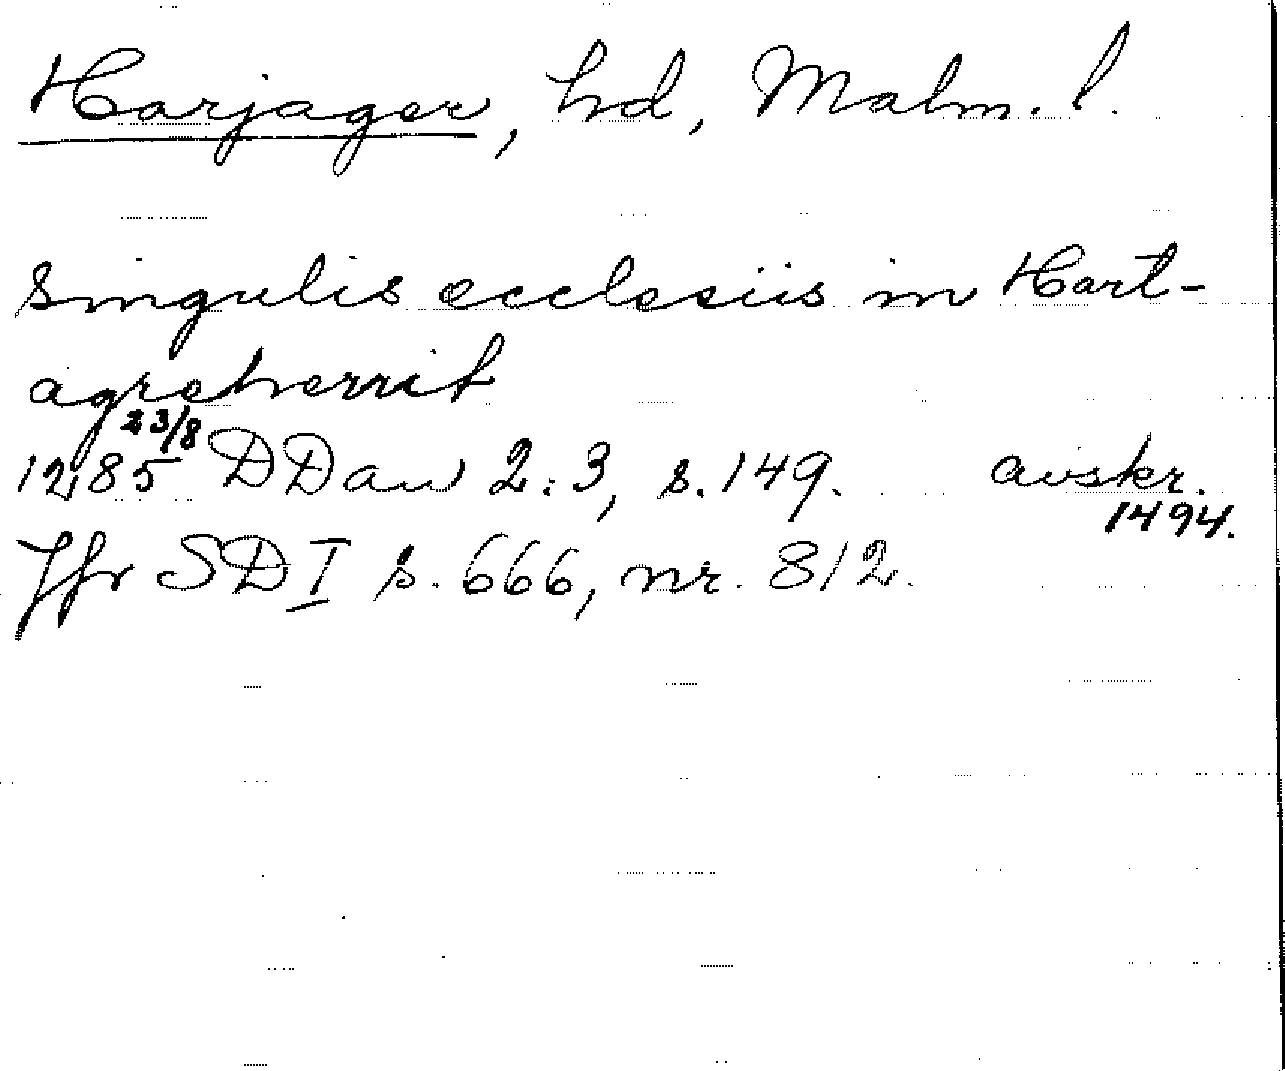 Harjager, hd, Malm. l.
singulis ecclesiis in Hart-
agreherrit
23/8
1285 DDan 2:3, s. 149. avskr.
1494.
Jfr SD I s. 666, nr. 812.